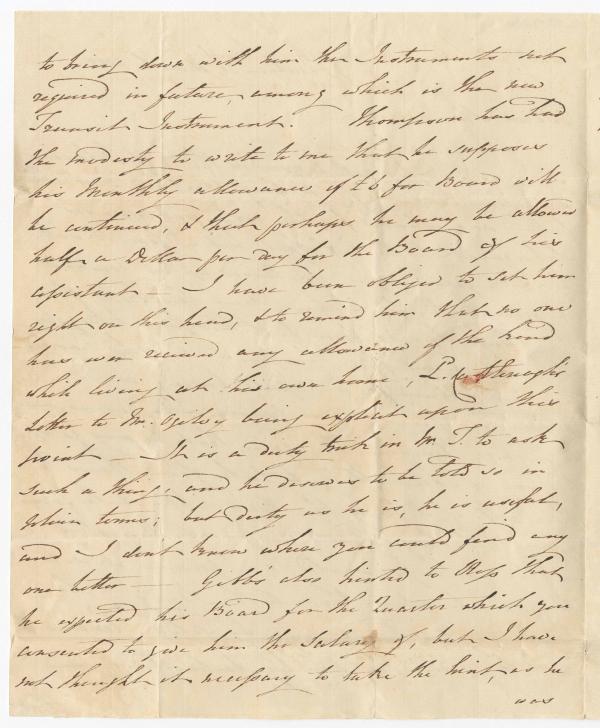 to bring down with him the Instruments not
required in future, among which is the new
Transit Instrument. Thompson has had
the modesty to write to me that he supposes
his Monthly allowance of £6 for Board will
be continued, & that perhaps he may be allowed
half a Dollar per day for the Board of his
assistant — I have been obliged to set him
right on this head, & to remind him that no one
has ever received any allowance of the kind
while living at his own home, L. Castlereagh's
Letter to Mr. Ogilvy being explicit upon this
point — It is a dirty trick in Mr T. to ask
such a thing, and he deserves to be told so in
plain terms; but dirty as he is, he is useful,
and I dont know where you could find any
one better — Gibbs also hinted to Hep that
he expected his Board for the Quarter which you
consented to give him the Salary of, but I have
not thought it necessary to take the hint, as he
was